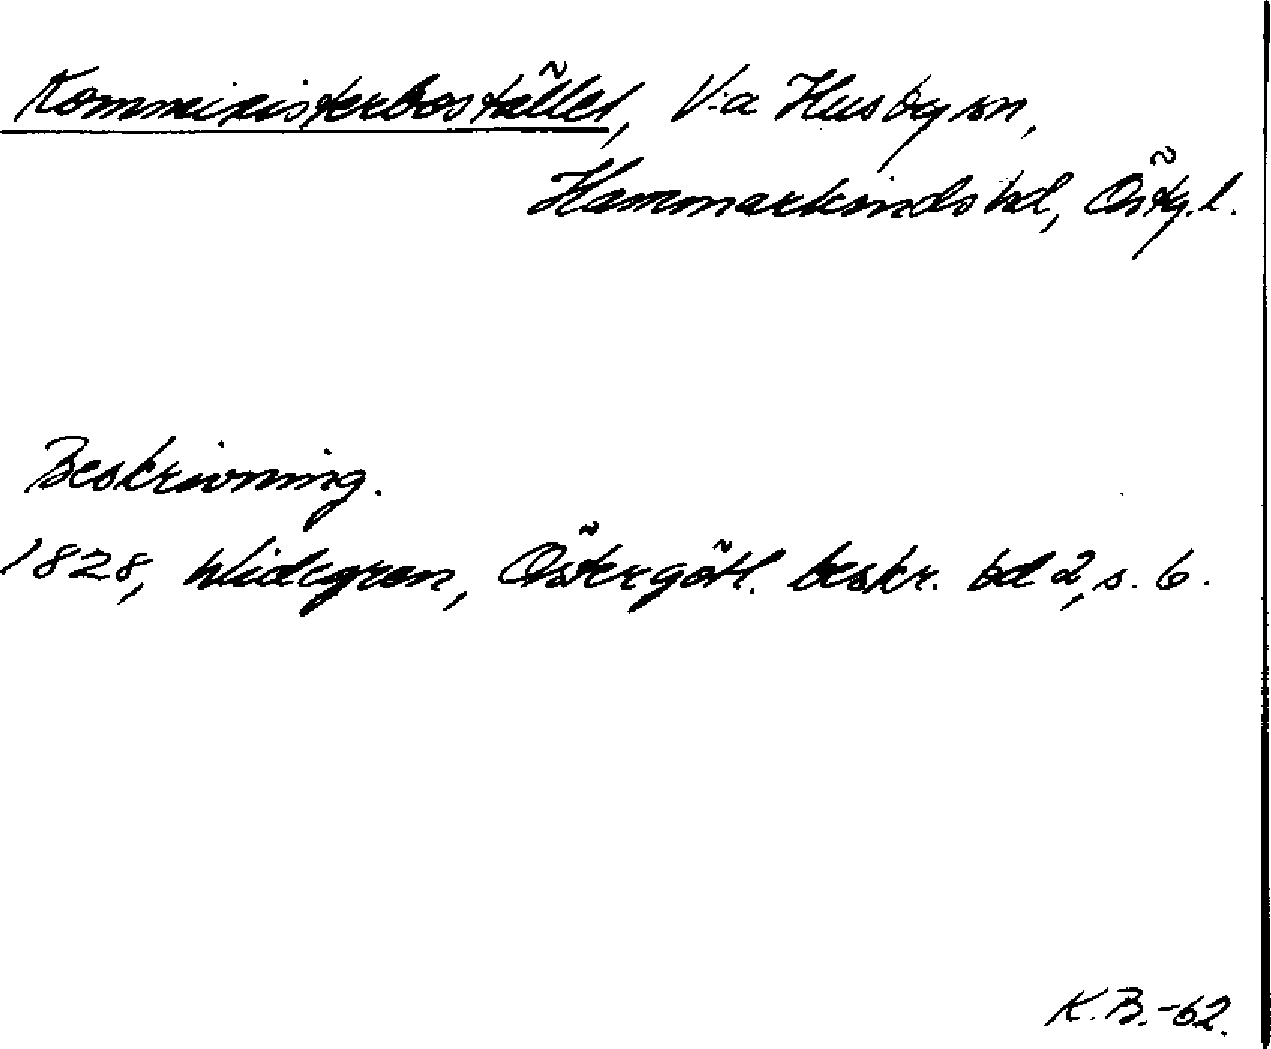 Komministerbostället, V:a Husby sn,
Hammarkinds hd, Östg.l.
Beskrivning.
1828, Widegren, Östergötl. beskr. bd 2, s. 6.
K.B.-62.